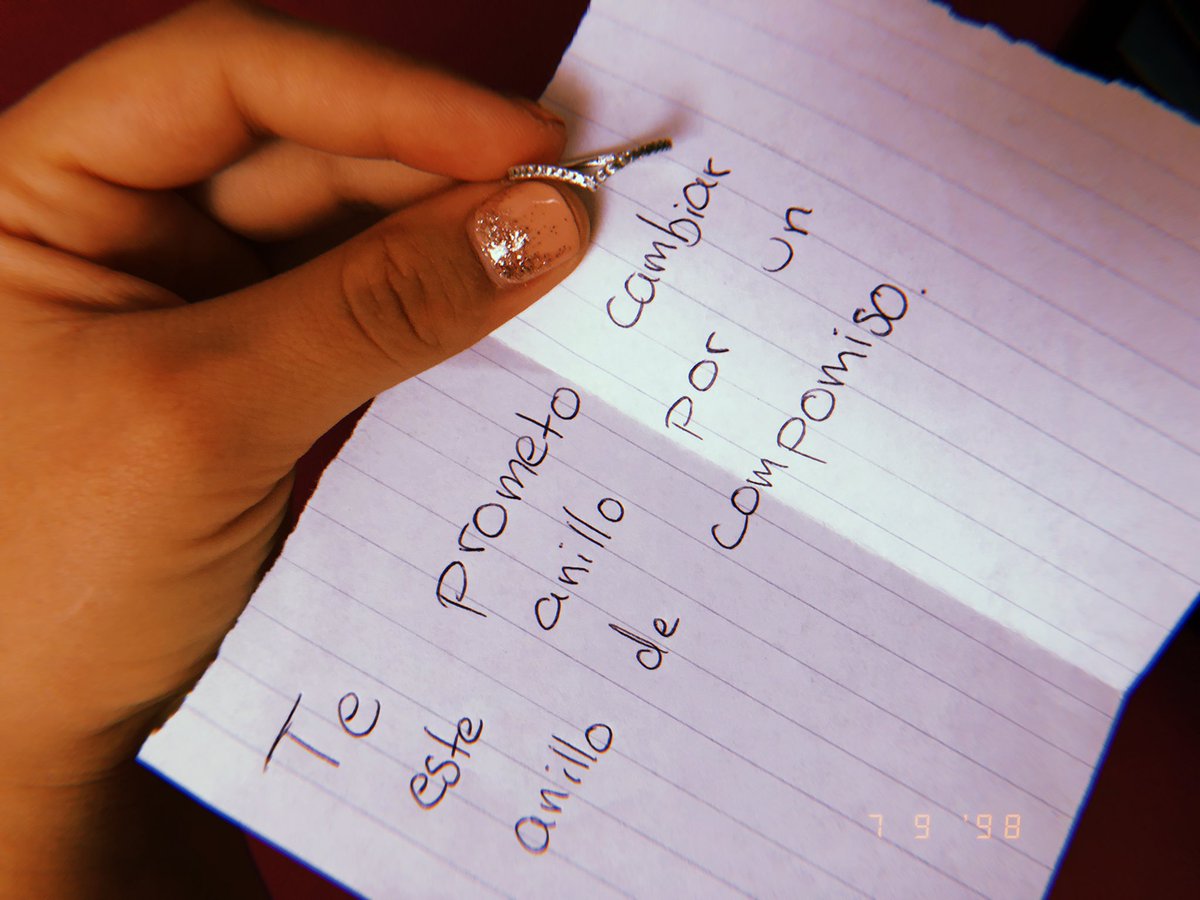 Te prometo cambiar
este anillo por un
anillo de compomiso.
7 9 '98